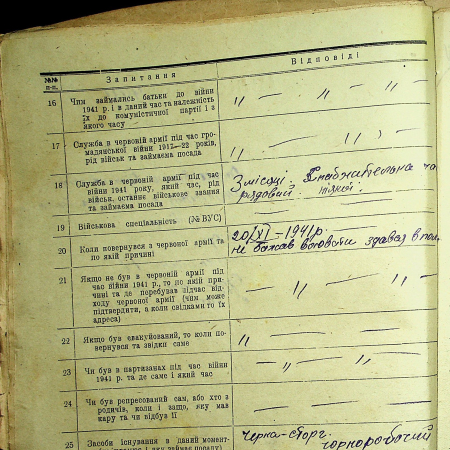 №№ п-п.
Запитання
Відповіді
16
Чим займались батьки до війни
1941 р. і в даний час та належність
їх до комуністичної партії і з
якого часу
„ — „ — „ —
17
Служба в червоній армії під час гро-
мадянської війни 1917—22 років,
рід військ та займаєма посада
„ — „
18
Служба в червоній армії під час
війни 1941 року, який час, рід
військ, останнє військове звання
та займаєма посада
3 місяці.
рядовий.
19
Військова спеціяльність (№ ВУС)
20
Коли повернувся з червоної армії та
по якій причині
20/XI — 1941 р.
не бажав воювати здавав в пол
21
Якщо не був в червоній армії під
час війни 1941 р., то по якій при-
чині та де перебував підчас від-
ходу червоної армії (чим може
підтвердити, а коли свідками то їх
адреса)
— „ — „ —
22
Якщо був евакуйований, то коли по-
вернувся та звідки саме
„ — — —
23
Чи був в партизанах під час війни
1941 р. та де саме і який час
— „ —
24
Чи був репресований сам, або хто з
родичів, коли і защо, яку мав
кару та чи відбув її
— — —
25
Засоби існування в даний момент-
чорноробочий